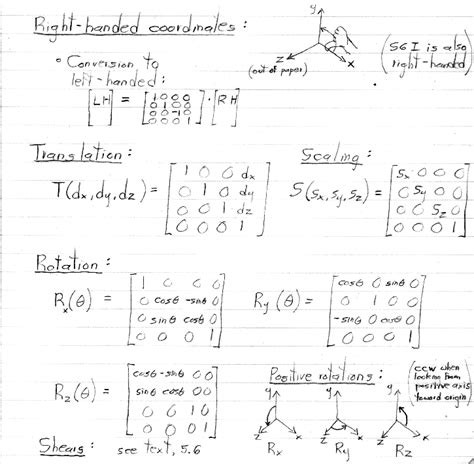 Right-handed coordinates :
y
x
z
(out of paper)
(SGI is also right-handed)
° Conversion to
left-handed :
[LH] = [1 0 0 0
0 1 0 0
0 0 -1 0
0 0 0 1] · [RH]
Translation :
T(dx, dy, dz) = [1 0 0 dx
0 1 0 dy
0 0 1 dz
0 0 0 1]
Scaling :
S(Sx, Sy, Sz) = [Sx 0 0 0
0 Sy 0 0
0 0 Sz 0
0 0 0 1]
Rotation :
Rx(θ) = [1 0 0 0
0 cosθ -sinθ 0
0 sinθ cosθ 0
0 0 0 1]
Ry(θ) = [cosθ 0 sinθ 0
0 1 0 0
-sinθ 0 cosθ 0
0 0 0 1]
Rz(θ) = [cosθ -sinθ 0 0
sinθ cosθ 0 0
0 0 1 0
0 0 0 1]
Positive rotations :
(CCW when
looking from
positive axis
toward origin)
y y y
z x z x z x
Rx Ry Rz
Shears : see text, 5.6